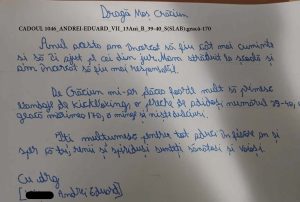 Dragă Moș Crăciun
CADOUL 1046_ANDREI-EDUARD_VII_13Ani_B_39-40_S(SLAB)geacă-170
Anul acesta am încercat să fiu cât mai cuminte
și să îi ajut pe cei din jur. M-am străduit la școală și
am încercat să fiu mai responsabil.
De Crăciun mi-ar plăcea foarte mult să primesc
bandaje de kickboxing, o pereche de adidași, numărul 39-40, o
geacă mărimea 170, o minge și niște dulciuri.
Îți mulțumesc pentru tot ce aduci în fiecare an și
sper că tu, renii și spiridușii sunteți sănătoși și voioși.
Cu drag
Andrei Eduard